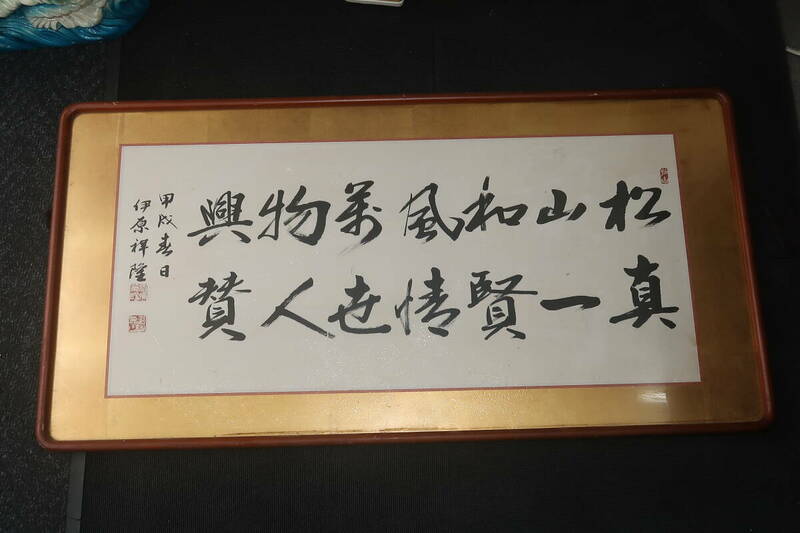 松山和風萬物興
真一賢情世人賛
甲戌春日
伊原祥隆